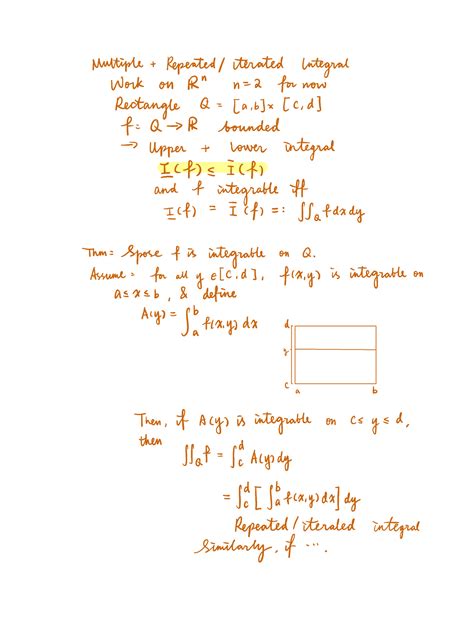 Multiple + Repeated / iterated Integral
Work on ℝⁿ n=2 for now
Rectangle Q = [a,b]× [c,d]
f: Q → ℝ bounded
→ Upper + lower integral
I̲(f) ≤ Ī(f)
and f integrable iff
I̲(f) = Ī(f) =: ∬_Q f dx dy
Thm: Spose f is integrable on Q.
Assume: for all y ∈ [c,d], f(x,y) is integrable on
a ≤ x ≤ b, & define
A(y) = ∫_a^b f(x,y) dx
d
y
c
a b
Then, if A(y) is integrable on c ≤ y ≤ d,
then
∬_Q f = ∫_c^d A(y) dy
= ∫_c^d [ ∫_a^b f(x,y) dx ] dy
Repeated / iterated integral
Similarly, if ....